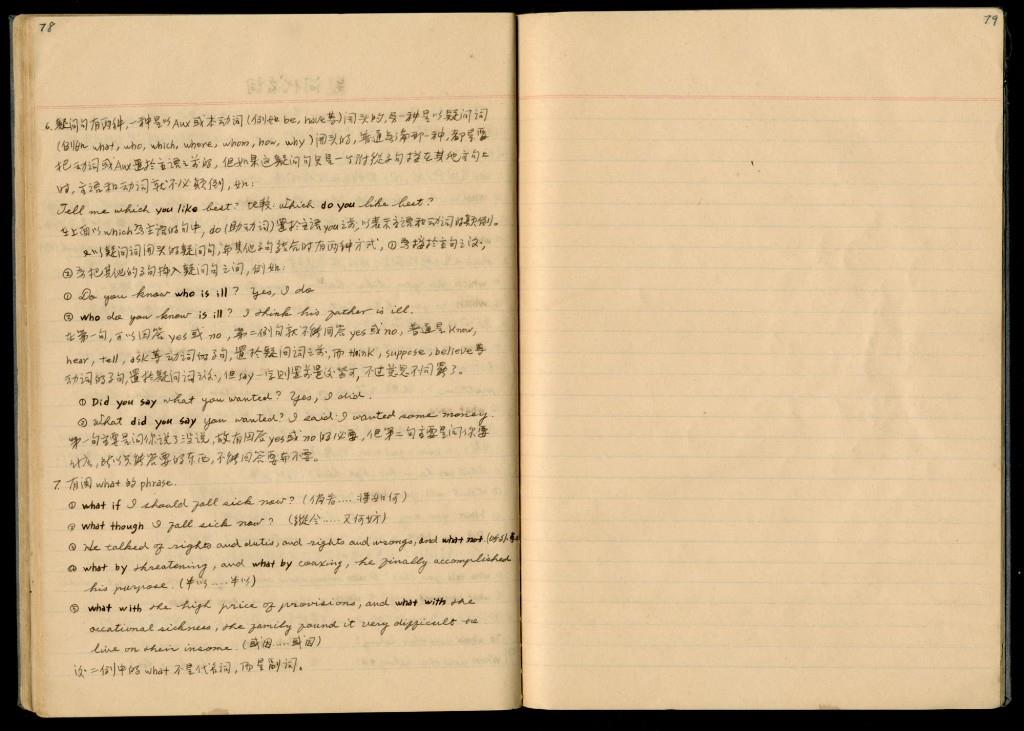 78
79
6. 疑问句有两种,一种是以 Aux 或本动词 (例如 be, have 等) 闭头的, 另一种是以疑问词
(例如 what, who, which, where, whom, how, why) 闭头的, 普通无论那一种, 都是要
把动词或 Aux 置於主语之前的, 但如果这疑问句只是一个附从子句接在其他主句上
时, 主语和动词就不必颠倒, 如:
Tell me which you like best? 比较: which do you like best?
在上面以 which 为主语的句中, do (助动词) 置於主语 you 之前, 以表示主语和动词的颠倒。
又以疑问词闭头的疑问句, 与其他子句结合时有两种方式, ① 为接於主句之后,
② 为把其他的子句插入疑问句之间, 例如:
① Do you know who is ill? Yes, I do
② who do you know is ill? I think his father is ill.
在第一句, 可以回答 yes 或 no, 第二例句就不能回答 yes 或 no, 普通是 know,
hear, tell, ask 等动词的子句, 置於疑问词之前, 而 think, suppose, believe 等
动词的子句, 置於疑问词之后, 但 say 一字则置前置后皆可, 不过意思不同罢了。
① Did you say what you wanted? Yes, I did.
② What did you say you wanted? I said I wanted some money.
第一句主要是问你说了没说, 故有回答 yes 或 no 的必要, 但第二句主要是问你要
什么, 所以只能答要的东西, 不能回答要和不要。
7. 有闭 what 的 phrase.
① what if I should fall sick now? (倘若.....将如何)
② what though I fall sick now? (縱令.....又何妨)
③ He talked of rights and dutis, and rights and wrongs, and what not.
④ what by threatening, and what by coaxing, he finally accomplished
his purpose. (半以.....半以)
⑤ what with the high price of provisions, and what with the
occational sickness, the family found it very difficult to
live on their insome. (或因....或因)
后二例中的 what 不是代名词, 而是副词。